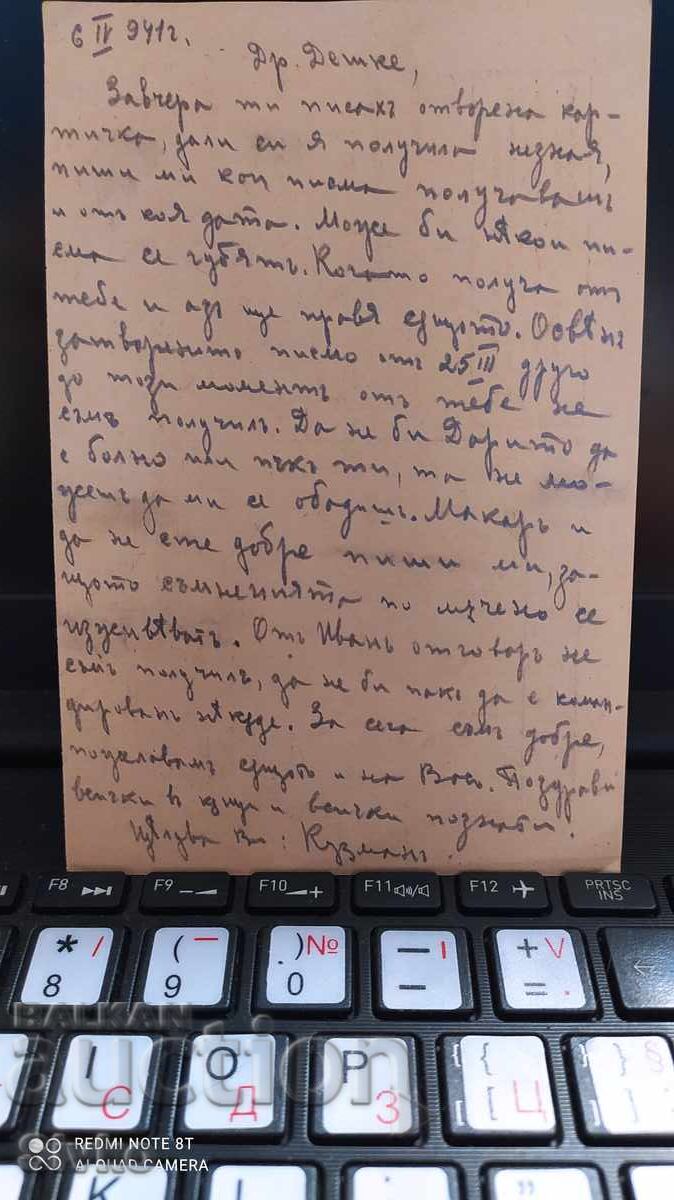 6 IV 941г.
Др. Дешке,
Завчера ти писахъ отворена кар-
тичка, дали си я получила незная,
пиши ми кои писма получавашъ
и отъ коя дата. Може би нѣкои пи-
сма се губятъ. Когато получа отъ
тебе и азъ ще правя същото. Освѣнъ
затвореното писмо отъ 25 III друго
до този моментъ отъ тебе не
съмъ получилъ. Да не би Дарито да
е болно или пъкъ ти, та не мо-
жешъ да ми се обадишъ. Макаръ и
да не сте добре пиши ми, за-
щото съмненията по мъчно се
изживѣватъ. Отъ Иванъ отговоръ не
съмъ получилъ, да не би пакъ да е коман-
дированъ нѣкъде. За сега съмъ добре,
пожелавамъ същото и на Васъ. Поздрави
всички в къщи и всички познати.
Цѣлува Ви: Кузманъ.
F8
F9
F10
F11
F12
PRTSC
INS
* /
8
( –
9
. ) №
0
— I
–
+ V
= .
І
С
О
Д
Р
З
[ {
[ Ц
} §
]
BALKAN
auction
REDMI NOTE 8T
AI QUAD CAMERA
К
L